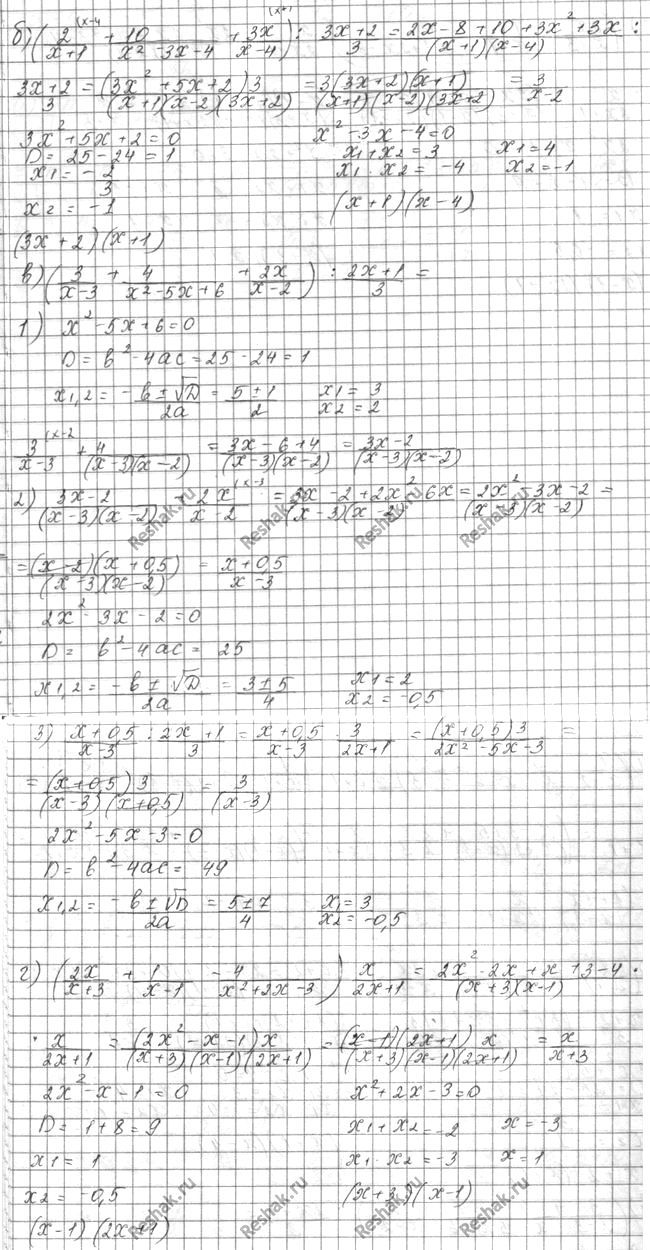 б) (2/(x+1) (x-4 + 10/(x²-3x-4) + 3x/(x-4)) : (3x+2)/3 = (2x-8+10+3x²+3x)/((x+1)(x-4)) :
(3x+2)/3 = (3x²+5x+2)3/((x+1)(x-2)(3x+2)) = 3(3x+2)(x+1)/((x+1)(x-2)(3x+2)) = 3/(x-2)
3x²+5x+2=0
D=25-24=1
x1=-2/3
x2=-1
(3x+2)(x+1)
x²-3x-4=0
x1+x2=3 x1=4
x1·x2=-4 x2=-1
(x+1)(x-4)
в) (3/(x-3) + 4/(x²-5x+6) + 2x/(x-2)) : (2x+1)/3 =
1) x²-5x+6=0
D=b²-4ac=25-24=1
x1,2=(-b±√D)/2a=(5±1)/2 x1=3 x2=2
3/(x-3) (x-2 + 4/((x-3)(x-2)) = (3x-6+4)/((x-3)(x-2)) = (3x-2)/((x-3)(x-2))
2) (3x-2)/((x-3)(x-2)) + 2x/(x-2) (x-3 = (3x-2+2x²-6x)/((x-3)(x-2)) = (2x²-3x-2)/((x-3)(x-2)) =
= (x-2)(x+0,5)/((x-3)(x-2)) = (x+0,5)/(x-3)
2x²-3x-2=0
D=b²-4ac=25
x1,2=(-b±√D)/2a=(3±5)/4 x1=2 x2=-0,5
3) (x+0,5)/(x-3) : (2x+1)/3 = (x+0,5)/(x-3) · 3/(2x+1) = (x+0,5)3/(2x²-5x-3) =
= (x+0,5)3/((x-3)(x+0,5)) = 3/(x-3)
2x²-5x-3=0
D=b²-4ac=49
x1,2=(-b±√D)/2a=(5±7)/4 x1=3 x2=-0,5
г) (2x/(x+3) + 1/(x-1) - 4/(x²+2x-3)) x/(2x+1) = (2x²-2x+x+3-4)/((x+3)(x-1)) ·
· x/(2x+1) = (2x²-x-1)x/((x+3)(x-1)(2x+1)) = (x-1)(2x+1)x/((x+3)(x-1)(2x+1)) = x/(x+3)
2x²-x-1=0
D=1+8=9
x1=1
x2=-0,5
(x-1)(2x+1)
x²+2x-3=0
x1+x2=-2 x=-3
x1·x2=-3 x=1
(x+3)(x-1)
Reshak.ru
Reshak.ru
Reshak.ru
Reshak.ru
Reshak.ru
Reshak.ru
Reshak.ru
Reshak.ru